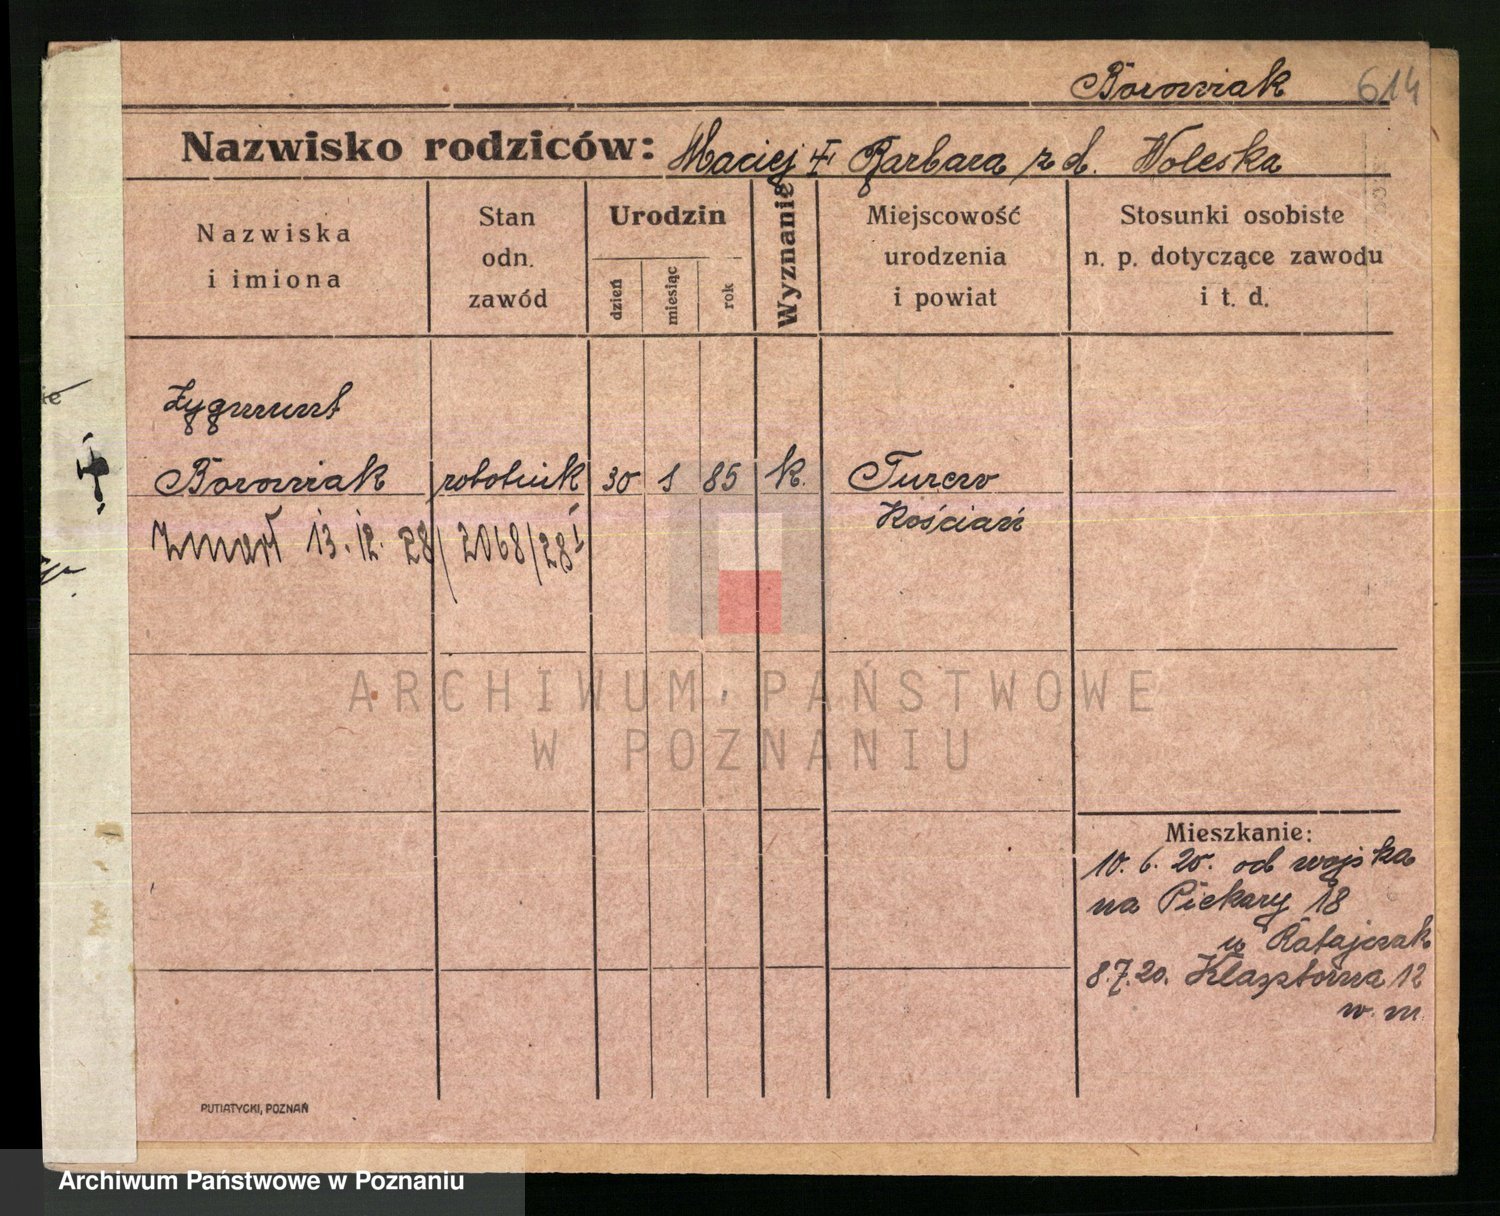 Borowiak 614
Nazwisko rodziców: Maciej i Barbara z d. Woleska
Nazwiska i imiona
Stan odn. zawód
Urodzin
dzień
miesiąc
rok
Wyznanie
Miejscowość urodzenia i powiat
Stosunki osobiste n. p. dotyczące zawodu i t. d.
Zygmunt
Borowiak robotnik 30 1 85 k. Turew
Kościań
Zmarł 13.12.28/2068/28
ARCHIWUM PAŃSTWOWE
W POZNANIU
Mieszkanie:
10. 6. 20. od wojska
na Piekary 18
u Ratajczak
8.7.20. Klasztorna 12
w. m.
PUTIATYCKI, POZNAŃ
Archiwum Państwowe w Poznaniu